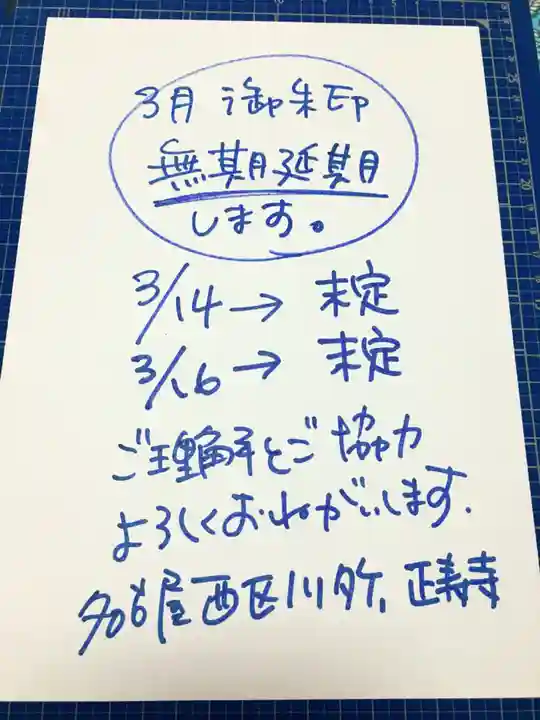 3月 御朱印
無期延期
します。
3/14→ 未定
3/16→ 未定
ご理解とご協力
よろしくおねがいします.
名古屋西区川 正寿寺